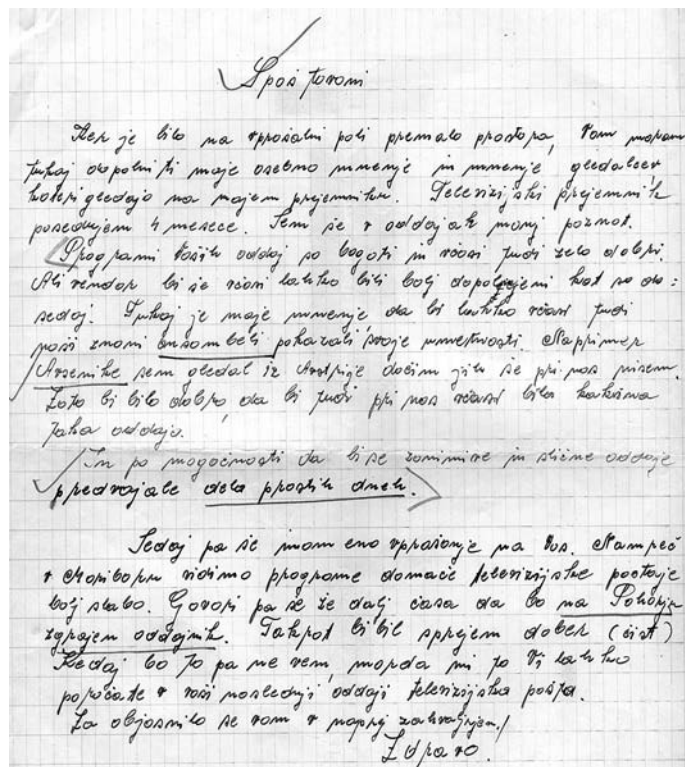 Spoštovani
Ker je bilo na vprašalni poli premalo prostora, Vam moram
tukaj dopolniti moje osebno mnenje in mnenje gledalcev
kateri gledajo na mojem prejemniku. Televizijski prejemnik
posedujem 4 mesece. Sem še v oddajah manj poznat.
Programi Vaših oddaj so bogati in včasi tudi zelo dobri.
Ali vendar bi se včasi lahko bili bolj dopolnjeni kot so do=
sedaj. Tukaj je moje mnenje da bi lahko včasi tudi
naši znani ansambeli pokazali svoje umetnosti. Napprimer
Avsenike sem gledal iz Avstrije dočim jih še pri nas nisem.
Zato bi bilo dobro, da bi tudi pri nas včasi bila kakšna
taka oddaja.
In po mogočnosti da bi se zanimive in slične oddaje
predvajale dela prostih dneh.
Sedaj pa še imam eno vprašanje na Vas. Namreč
v Mariboru vidimo programe domače televizijske postaje
bolj slabo. Govori pa se že dalj časa da bo na Pohorju
zgrajen oddajnik. Takrat bi bil sprejem dober (čist)
Kedaj bo to pa ne vem, morda mi to Vi lahko
poročate v vaši naslednji oddaji televizijska pošta.
Za objasnilo se vam v naprej zahvaljujem!
Zdravo.